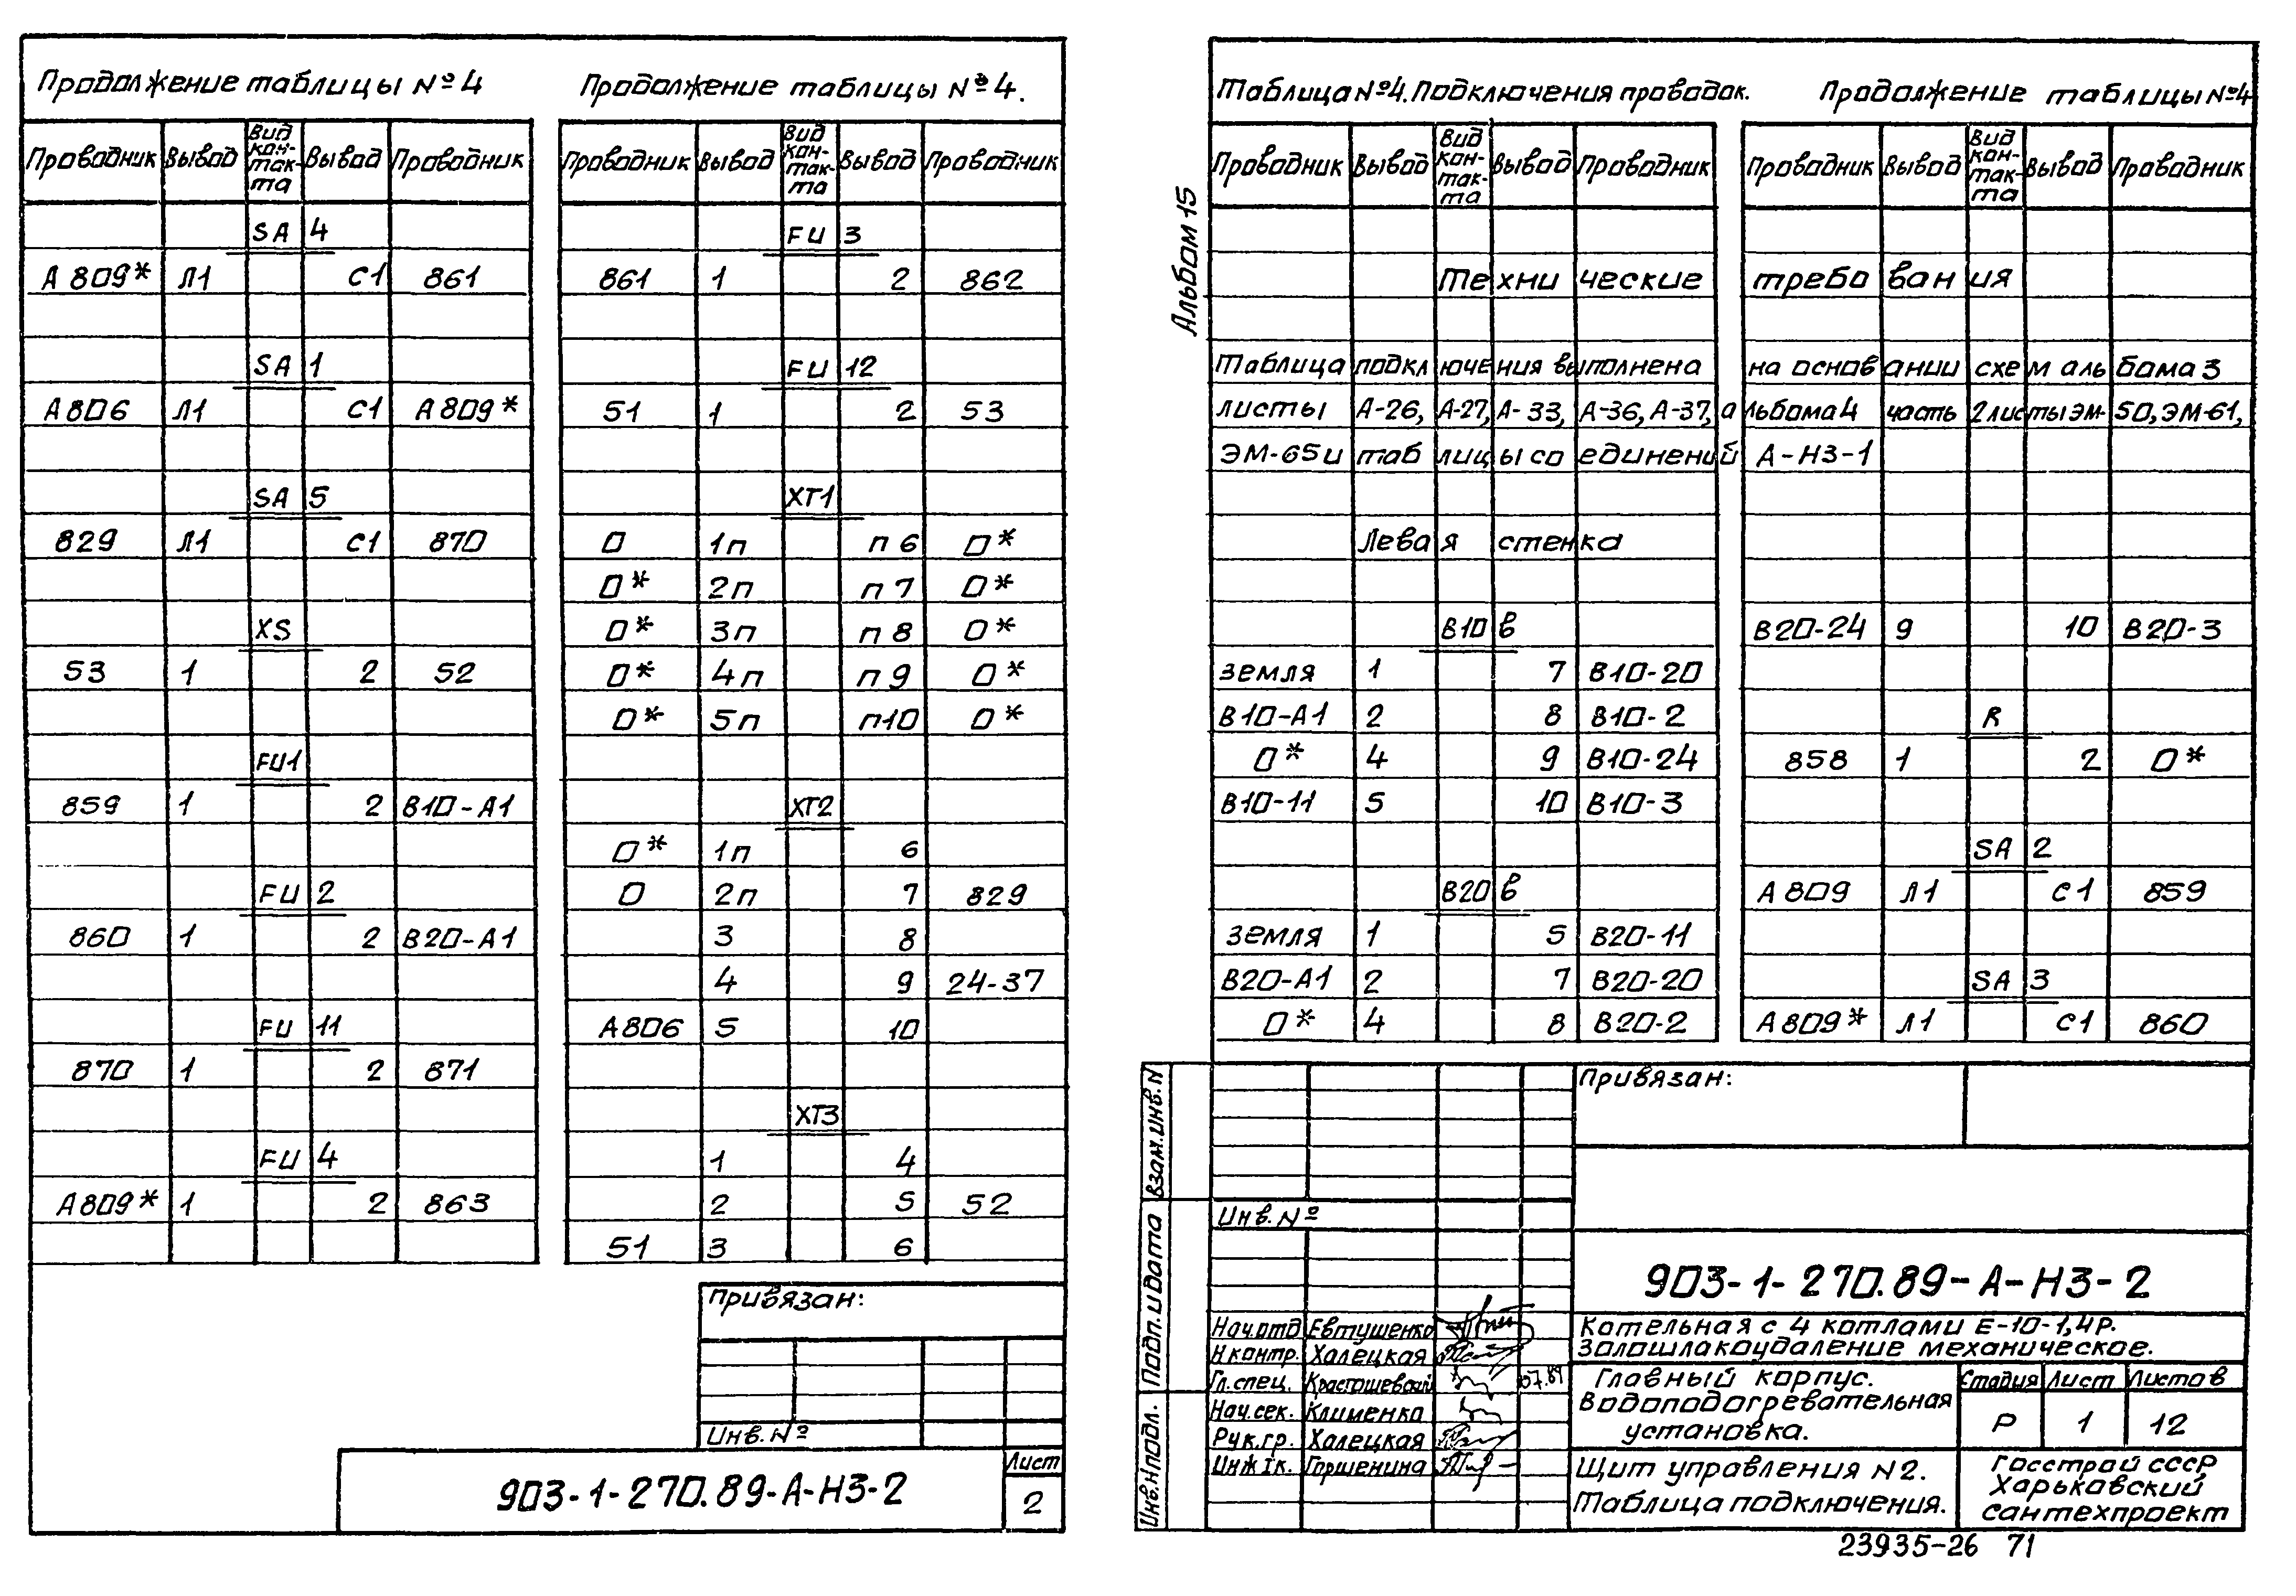 Продолжение таблицы №4
Проводник Вывод Вид кон-так-та Вывод Проводник
SA 4
А809* Л1 С1 861
SA 1
А806 Л1 С1 А809*
SA 5
829 Л1 С1 870
XS
53 1 2 52
FU1
859 1 2 В10-А1
FU 2
860 1 2 В20-А1
FU 11
870 1 2 871
FU 4
А809* 1 2 863
Продолжение таблицы №4.
Проводник Вывод Вид кон-так-та Вывод Проводник
FU 3
861 1 2 862
FU 12
51 1 2 53
XT1
0 1п п6 0*
0* 2п п7 0*
0* 3п п8 0*
0* 4п п9 0*
0* 5п п10 0*
XT2
0* 1п 6
0 2п 7 829
3 8
4 9 24-37
А806 5 10
XT3
1 4
2 5 52
51 3 6
Привязан:
Инв.№
903-1-270.89-А-НЗ-2
Лист
2
Альбом 15
Таблица №4. Подключения проводок.
Продолжение таблицы №4
Проводник Вывод Вид кон-так-та Вывод Проводник
Проводник Вывод Вид кон-так-та Вывод Проводник
Технические требования
Таблица подключения выполнена на основании схем альбома 3
листы А-26, А-27, А-33, А-36, А-37, альбома 4 часть 2 листы ЭМ-50, ЭМ-61,
ЭМ-65 и таблицы соединений А-НЗ-1
Левая стенка
В10 в
земля 1 7 В10-20
В10-А1 2 8 В10-2
0* 4 9 В10-24
В10-11 5 10 В10-3
В20 в
земля 1 5 В20-11
В20-А1 2 7 В20-20
0* 4 8 В20-2
В20-24 9 10 В20-3
R
858 1 2 0*
SA 2
А809 Л1 С1 859
SA 3
А809* Л1 С1 860
Взам.инв.N
Подп.и дата
Инв.Nподл.
Привязан:
Инв.№
903-1-270.89-А-НЗ-2
Нач.отд Евтушенко
Н контр. Халецкая
Гл.спец. Красташевский 07.89
Нач.сек. Клименко
Рук.гр. Халецкая
Инж Iк. Горшенина
Котельная с 4 котлами Е-10-1,4Р.
Золошлакоудаление механическое.
Главный корпус.
Водоподогревательная
установка.
Стадия Лист Листов
Р 1 12
Щит управления N2.
Таблица подключения.
Госстрой СССР
Харьковский
Сантехпроект
23935-26 71